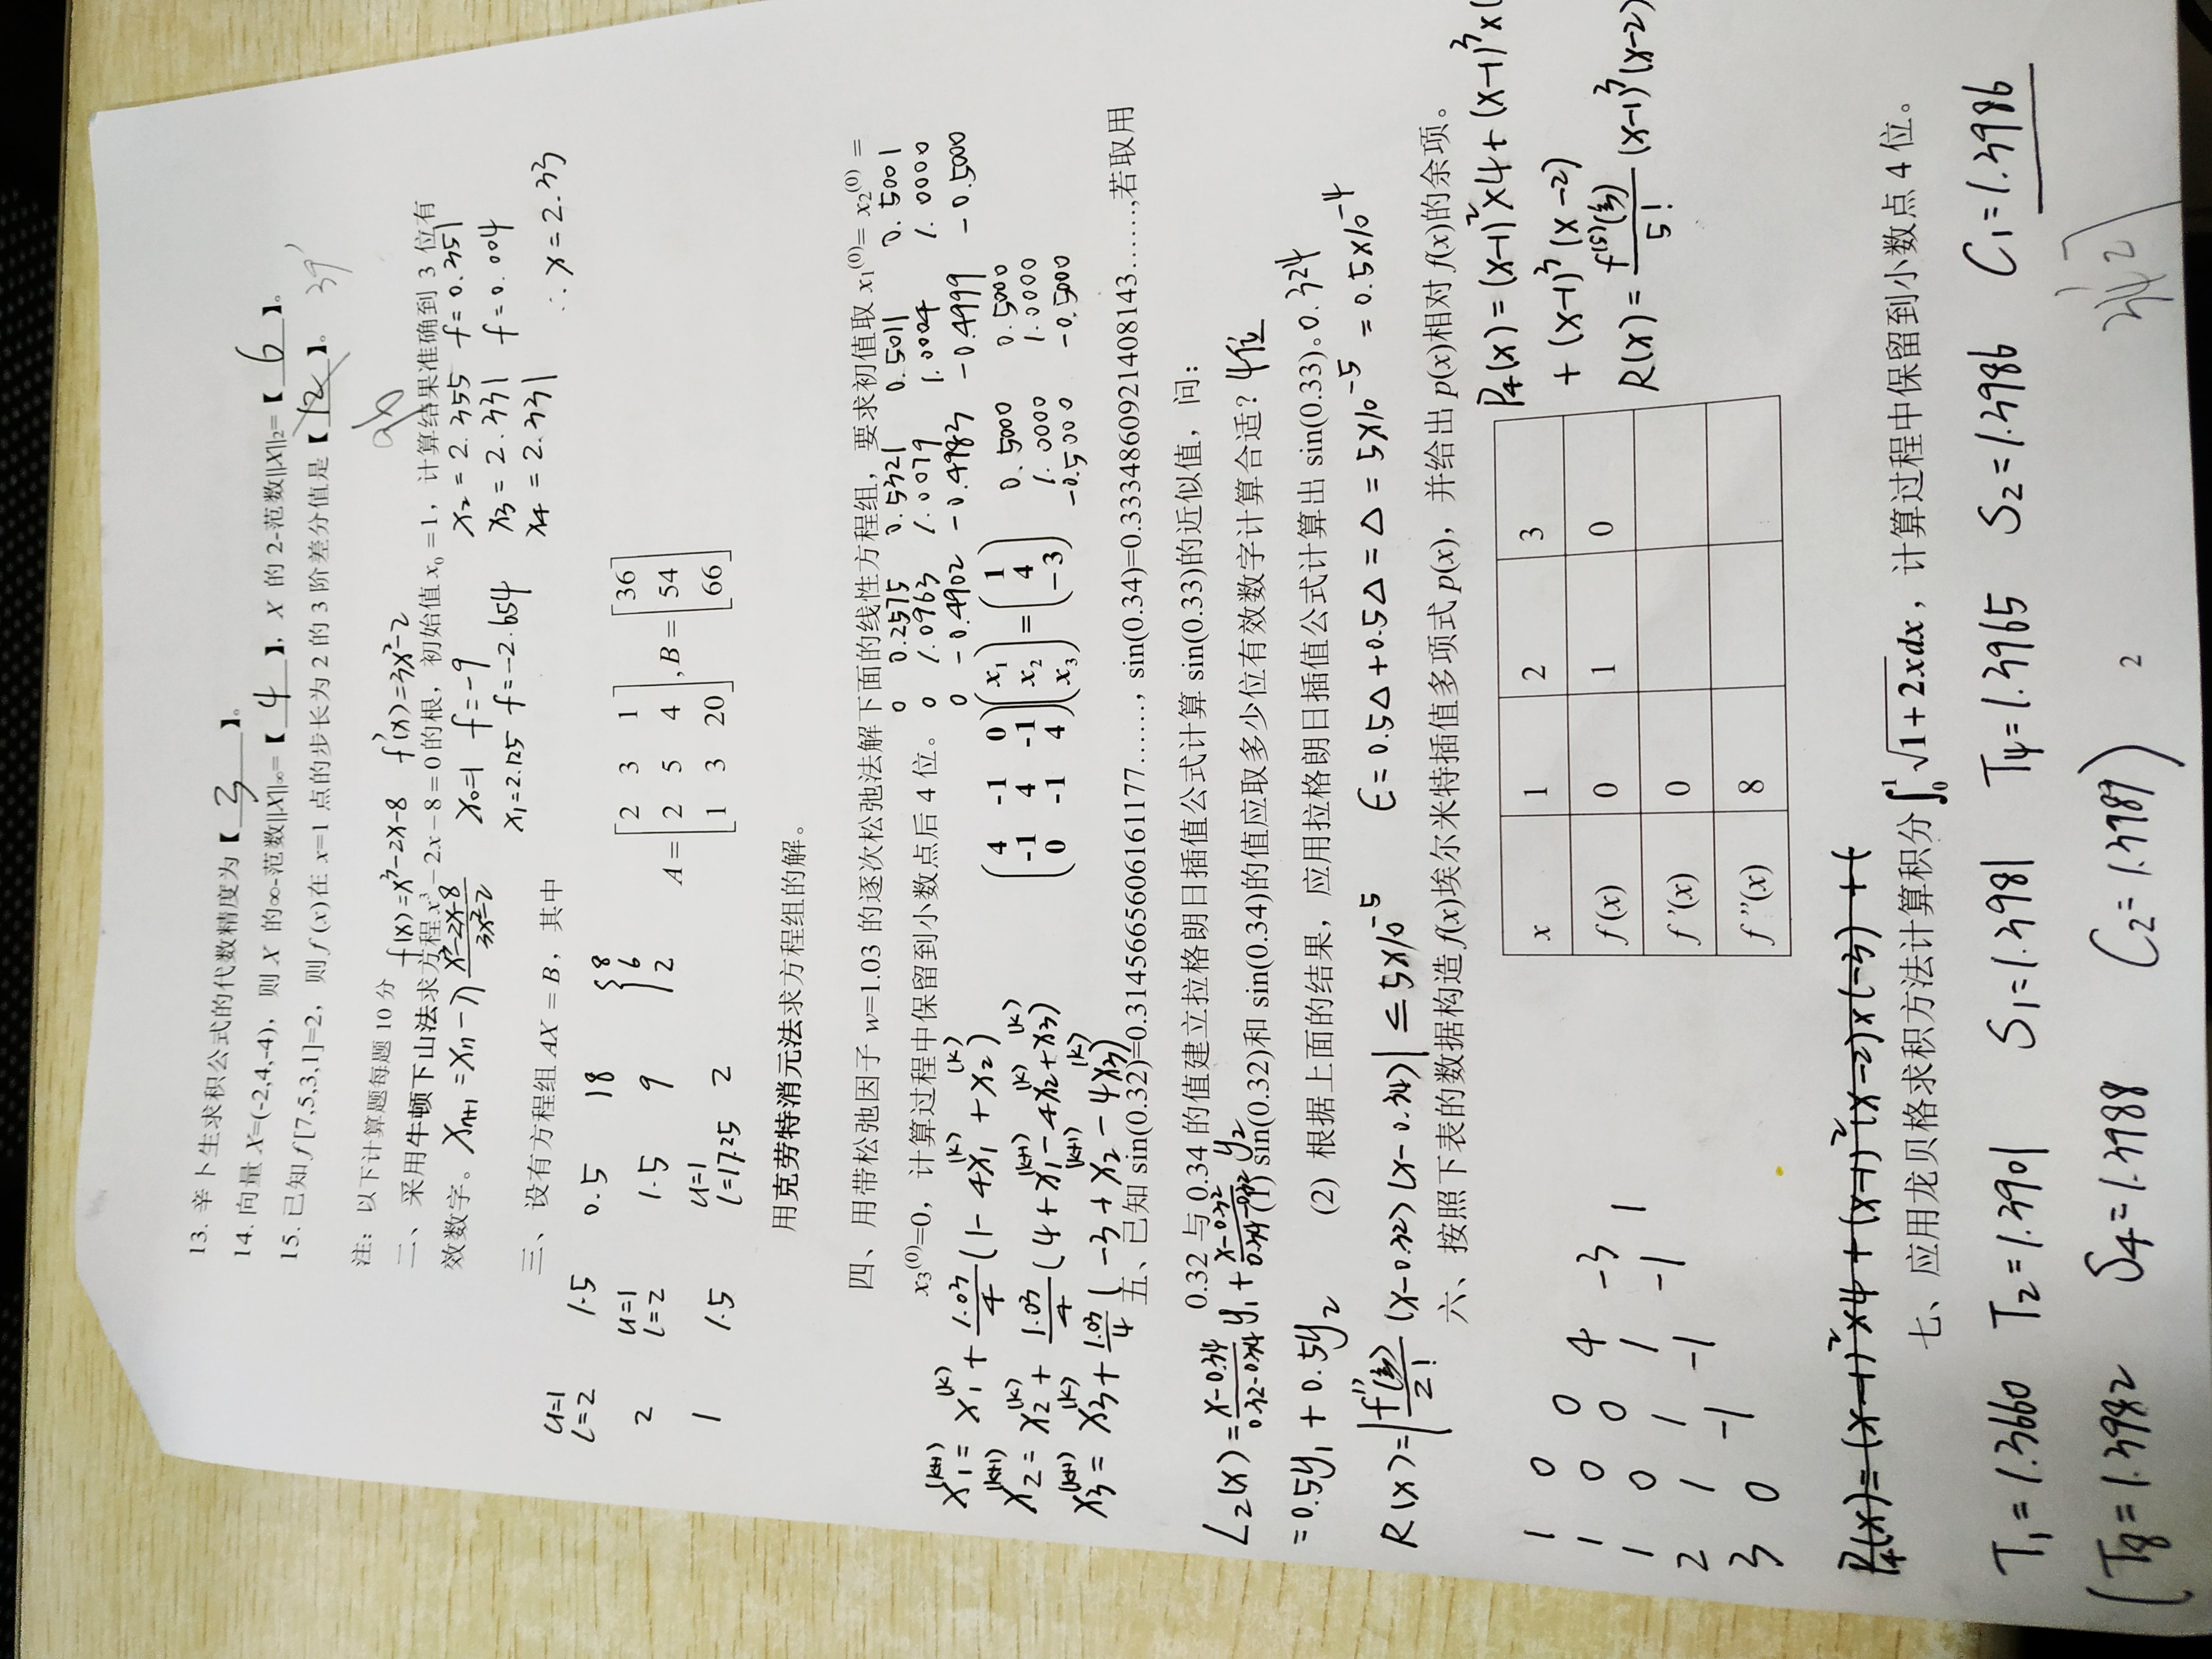 13. 辛卜生求积公式的代数精度为【 3 】。
14. 向量 X=(-2,4,-4)，则 X 的∞-范数||X||∞=【 4 】，X 的 2-范数||X||2=【 6 】。
15. 已知 f[7,5,3,1]=2，则 f (x)在 x=1 点的步长为 2 的 3 阶差分值是【 12 】。 39'
96
注：以下计算题每题 10 分 f(x)=x³-2x-8 f'(x)=3x²-2
二、采用牛顿下山法求方程 x³-2x-8=0 的根，初始值 x₀=1，计算结果准确到 3 位有
效数字。 Xn+1 = Xn - λ (x³-2x-8)/(3x²-2)
x0=1 f=-9
x1=2.125 f=-2.654
x2=2.355 f=0.351
x3=2.331 f=0.004
x4=2.331
∴x=2.33
三、设有方程组 AX = B，其中
u=1
l=2 1.5 0.5 18
2 u=1 l=2 1.5 9
1 1.5 u=1 l=17.25 2
{8 6 2
A=[2 3 1; 2 5 4; 1 3 20], B=[36; 54; 66]
用克劳特消元法求方程组的解。
四、用带松弛因子 w=1.03 的逐次松弛法解下面的线性方程组，要求初值取 x₁⁽⁰⁾= x₂⁽⁰⁾ =
x₃⁽⁰⁾=0，计算过程中保留到小数点后 4 位。
0 0.2575 0.5321 0.5011 0.5001
0 1.0963 1.0079 1.0004 1.0000
0 -0.4902 -0.4983 -0.4999 -0.5000
0.5000 0.5000
1.0000 1.0000
-0.5000 -0.5000
x₁⁽ᵏ⁺¹⁾ = x₁⁽ᵏ⁾ + 1.03/4 (1-4x₁⁽ᵏ⁾+x₂⁽ᵏ⁾)
x₂⁽ᵏ⁺¹⁾ = x₂⁽ᵏ⁾ + 1.03/4 (4+x₁⁽ᵏ⁺¹⁾-4x₂⁽ᵏ⁾+x₃⁽ᵏ⁾)
x₃⁽ᵏ⁺¹⁾ = x₃⁽ᵏ⁾ + 1.03/4 (-3+x₂⁽ᵏ⁺¹⁾-4x₃⁽ᵏ⁾)
(4 -1 0; -1 4 -1; 0 -1 4)(x₁; x₂; x₃)=(1; 4; -3)
五、已知 sin(0.32)=0.3145665606161177……，sin(0.34)=0.3334860921408143……,若取用
0.32 与 0.34 的值建立拉格朗日插值公式计算 sin(0.33)的近似值，问：
L₂(x)=(x-0.34)/(0.32-0.34) y₁+(x-0.32)/(0.34-0.32) y₂
(1) sin(0.32)和 sin(0.34)的值应取多少位有效数字计算合适？4位
=0.5y₁+0.5y₂
(2) 根据上面的结果，应用拉格朗日插值公式计算出 sin(0.33)。0.324
R(x)=|f''(ξ)/2! (x-0.32)(x-0.34)| ≤ 5×10⁻⁵ ε=0.5Δ+0.5Δ=Δ=5×10⁻⁵=0.5×10⁻⁴
六、按照下表的数据构造 f(x)埃尔米特插值多项式 p(x)，并给出 p(x)相对 f(x)的余项。
P₄(x)=(x-1)²×4+(x-1)³×(
+(x-1)³(x-2)
R(x)=f⁽⁵⁾(ξ)/5! (x-1)³(x-2)
x 1 2 3
f (x) 0 1 0
f ’(x) 0
f ”(x) 8
1 0
0
1 0 4
0 -3
1 0 1 1
1 -1
2 1 -1
-1
3 0
P₄(x)=(x-1)²×4+(x-1)²(x-2)×(-3)+(
七、应用龙贝格求积方法计算积分∫₀¹ √(1+2x)dx，计算过程中保留到小数点 4 位。
T₁=1.3660 T₂=1.3901 S₁=1.3981 T₄=1.3965 S₂=1.3986 C₁=1.3986
(T₈=1.3982 S₄=1.3988 C₂=1.3989)
2